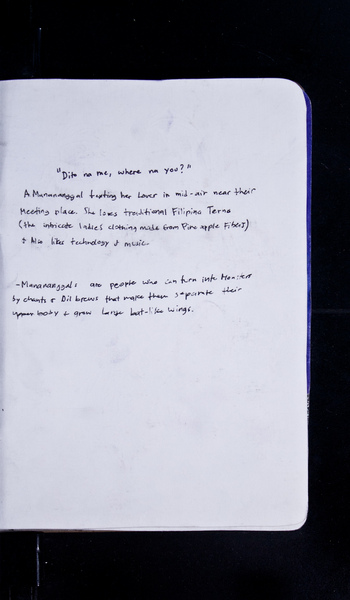 "Dito na me, where na you?"
A Manananggal texting her lover in mid-air near their
meeting place. She loves traditional Filipino Terno
(the intricate ladies clothing made from Pine apple Fiber)
& Also likes technology & music.
-Manananggals are people who can turn into Monsters
by chants & Oil brews that make them separate their
upper body & grow large bat-like wings.